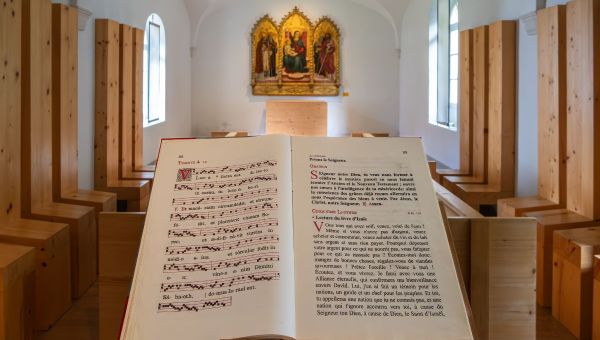 Tractus 4
V I - nea facta est
in cornu, in loco
Et maceriam circumdedit, et circumfo-
dit: et plantavit vineam So-rec
et ædi-ficavit
in medio e- Et torcular fodit in
e- vinea e-nim Domini
Sá - baoth, domus Israel est.
Prions le Seigneur.
Oraison
Seigneur notre Dieu, tu nous formes à
célébrer le mystère pascal en nous faisant
écouter l'Ancien et le Nouveau Testament ; ouvre
nos cœurs à l'intelligence de ta miséricorde; ainsi
la conscience des grâces déjà reçues affermira en
nous l'espérance des biens à venir. Par Jésus, le
Christ, notre Seigneur. ℟. Amen.
Cinquième Lecture
Lecture du livre d'Isaïe
Vous tous qui avez soif, venez, voici de l'eau !
Même si vous n'avez pas d'argent, venez
acheter et consommer, venez acheter du vin et du lait
sans argent et sans rien payer. Pourquoi dépenser
votre argent pour ce qui ne nourrit pas, vous fatiguer
pour ce qui ne rassasie pas ? Écoutez-moi donc:
mangez de bonnes choses, régalez-vous de viandes
savoureuses ! Prêtez l'oreille ! Venez à moi !
Écoutez, et vous vivrez. Je ferai avec vous une
Alliance éternelle, qui confirmera ma bienveillance
envers David. Lui, j'en ai fait un témoin pour les
nations, un guide et un chef pour les peuples. Et toi,
tu appelleras une nation que tu ne connais pas, et une
nation qui t'ignore accourra vers toi, à cause du
Seigneur ton Dieu, à cause de Dieu, le Saint d'Israël,